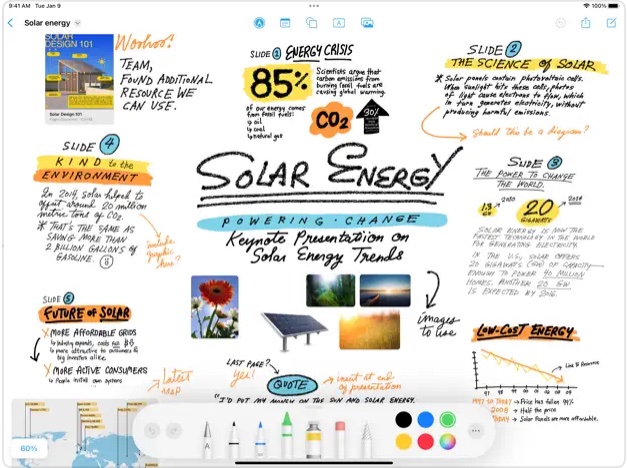 9:41 AM Tue Jan 9
100%
Solar energy
SOLAR
DESIGN 101
Solar Design 101
Woohoo!
TEAM,
FOUND ADDITIONAL
RESOURCE WE
CAN USE.
SLIDE 1 ENERGY CRISIS
85%
Scientists argue that
carbon emissions from
burning fossil fuels are
causing global warming.
of our energy comes
from fossil fuels:
oil
coal
natural gas
CO2
30%
SLIDE 2
THE SCIENCE OF SOLAR
* Solar panels contain photovoltaic cells.
When sunlight hits these cells, photons
of light cause electrons to flow, which
in turn generates electricity, without
producing harmful emissions.
Should this be a diagram?
SLIDE 4
KIND to the
ENVIRONMENT
In 2014, solar helped to
offset around 20 million
metric tons of CO2.
* THAT'S THE SAME AS
SAVING MORE THAN
2 BILLION GALLONS OF
GASOLINE.
include
graphic
here?
SOLAR ENERGY
POWERING CHANGE
Keynote Presentation on
Solar Energy Trends
SLIDE 3
THE POWER TO CHANGE
THE WORLD.
20
GIGAWATTS
SOLAR ENERGY IS NOW THE
FASTEST TECHNOLOGY IN THE WORLD
FOR GENERATING ELECTRICITY.
IN THE U.S., SOLAR OFFERS
20 GIGAWATTS (GW) OF CAPACITY—
ENOUGH TO POWER 40 MILLION
HOMES. ANOTHER 20 GW
IS EXPECTED BY 2016.
images
to use
SLIDE 5
FUTURE OF SOLAR
MORE AFFORDABLE GRIDS
more attractive to consumers &
big investors alike
MORE ACTIVE CONSUMERS
People install own systems
Latest
map
LAST PAGE?
Yes!
QUOTE
insert at end
of presentation
"I'D PUT MY MONEY ON THE SUN AND SOLAR ENERGY.
LOW-COST ENERGY
1977 TO TODAY → Price has fallen 99%
2008 → Half the price
TODAY → Solar Panels are more affordable.
60%